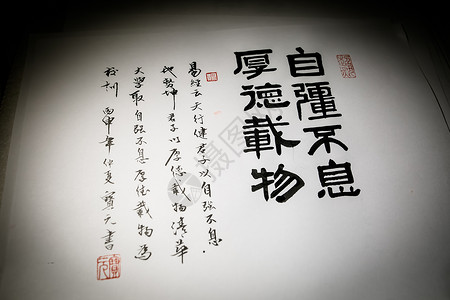 自彊不息
厚德載物
易經云天行健君子以自强不息.
地勢坤君子以厚德載物清華
大學取自强不息厚德載物為
校訓 丙申年仲夏 寶元書